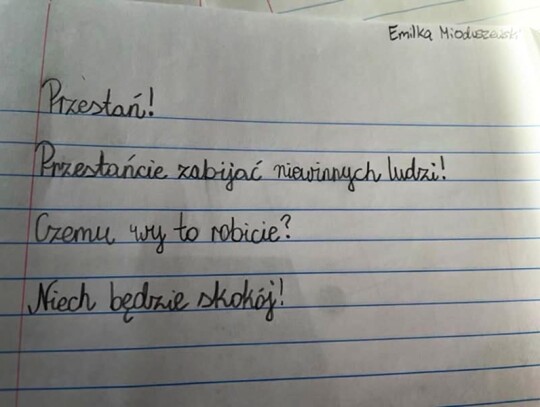 Emilka Mioduszewska
Przestań!
Przestańcie zabijać niewinnych ludzi!
Czemu wy to robicie?
Niech będzie skokój!